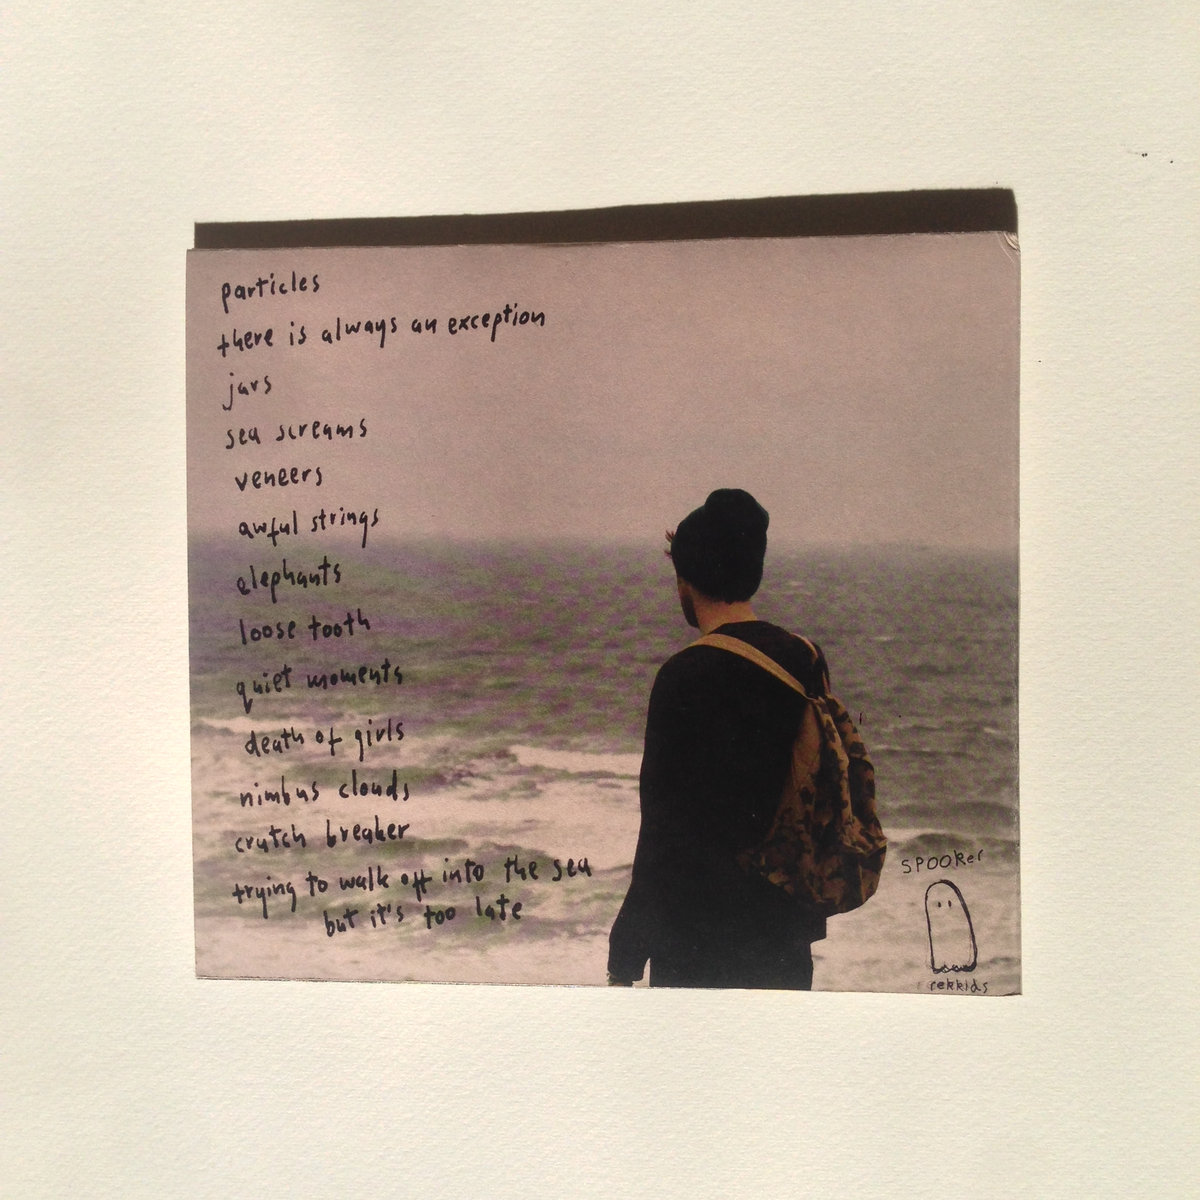 particles
there is always an exception
jars
sea screams
veneers
awful strings
elephants
loose tooth
quiet moments
death of girls
nimbus clouds
crutch breaker
trying to walk off into the sea
but it's too late
SPOOKer
rekkids